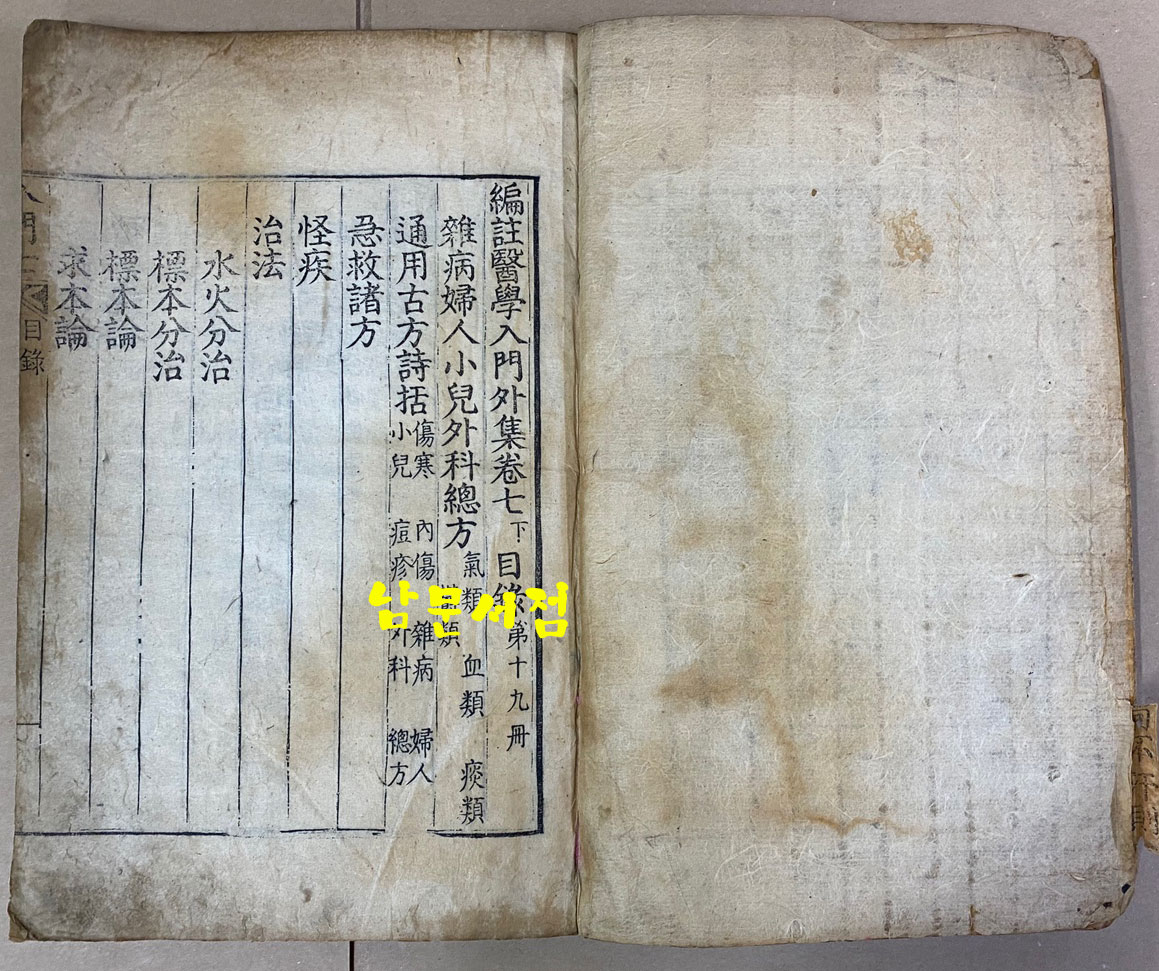 編註醫學入門外集卷七下目錄第十九冊
雜病婦人小兒外科總方氣類 血類 痰類
類
通用古方詩括傷寒 內傷 雜病 婦人
小兒 痘疹 外科 總方
急救諸方
怪疾
治法
水火分治
標本分治
標本論
求本論
入門
目錄
남문서점